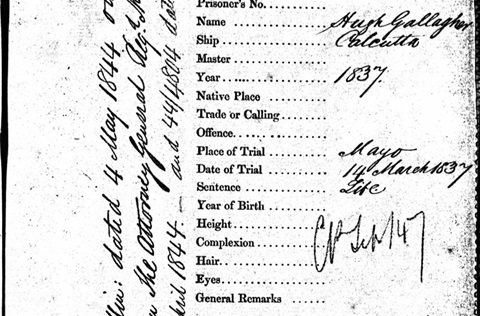 Prisoner's No.
Name Hugh Gallagher
Ship Calcutta
Master
Year 1837.
Native Place
Trade or Calling
Offence
Place of Trial Mayo
Date of Trial 14 March 1837
Sentence Life
Year of Birth
Height
Complexion
Hair
Eyes
General Remarks
dated 4 May 1844
The Attorney General
and 44/4804
1844.